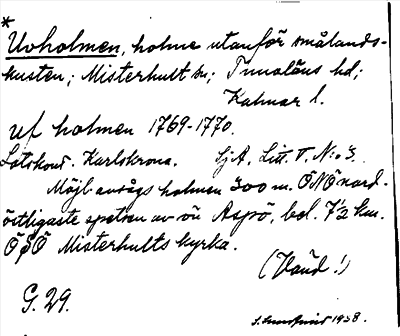 *
Uvholmen, holme utanför smålands-
kusten; Misterhult sn; Tunaläns hd;
Kalmar l.
Uf holmen 1769-1770.
Lotskont. Karlskrona. SjA, Litt. T. N:o 3.
Möjl. avsågs holmen 300 m. ÖNÖ nord-
östligaste spetsen av ön Aspö, bel. 7½ km.
ÖSÖ Misterhults kyrka.
(Vaud!)
G. 29.
1938.